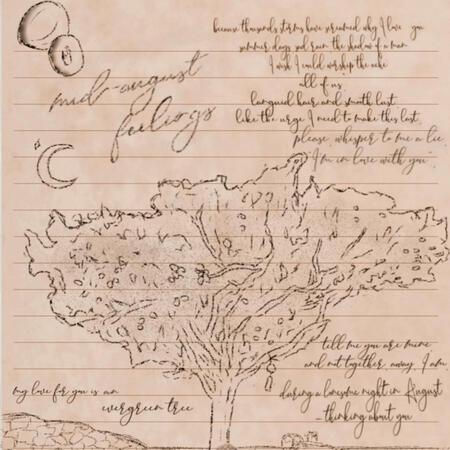 because thousands storms have screamed why I love you
summer days sad rain the shadow of a man
I wish I could worship the ache
all of us
languid hair and smooth lust
like the urge I need to make this last
please, whisper to me a lie
I'm in love with you
mid-august
feelings
tell me you are mine
and not together, away, I am
during a lonesome night in August
- thinking about you
my love for you is an
evergreen tree